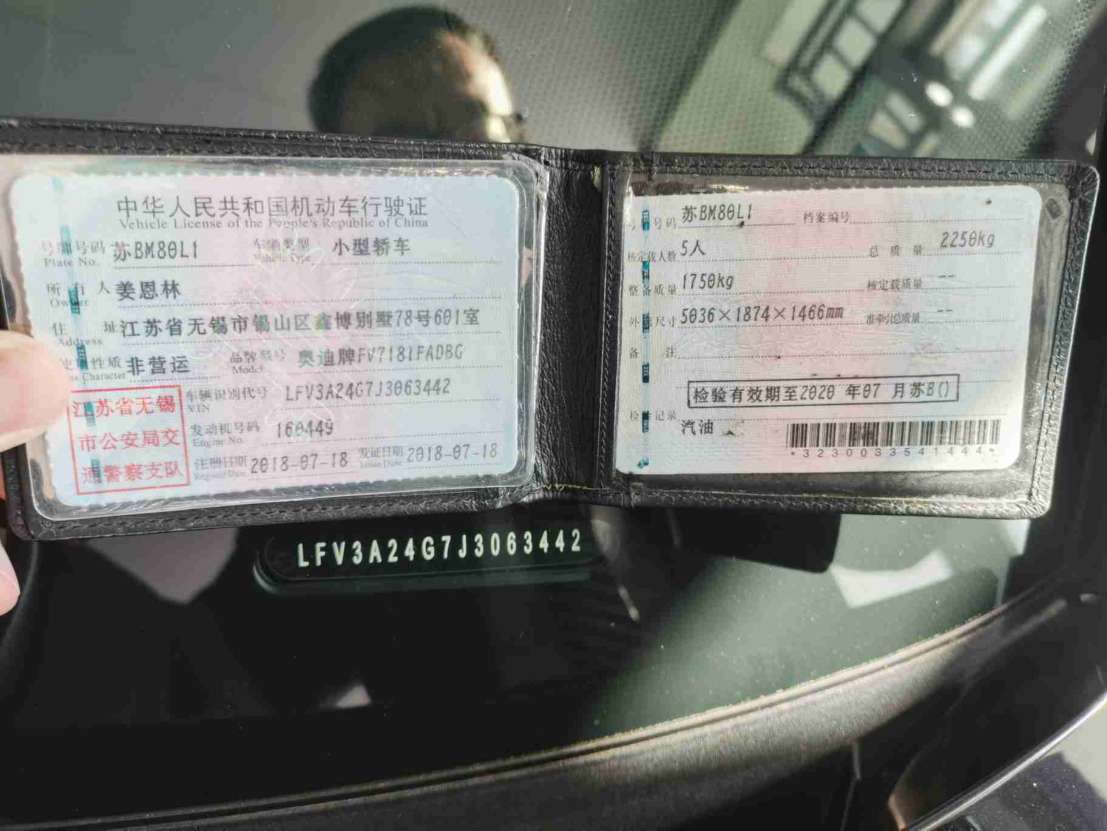 中华人民共和国机动车行驶证
Vehicle License of the People's Republic of China
号牌号码 苏BM80L1 车辆类型 小型轿车
Plate No. Vehicle Type
所有人 姜恩林
Owner
住址 江苏省无锡市锡山区鑫博别墅78号601室
Address
使用性质 非营运 品牌型号 奥迪牌FV7181FADBG
Use Character Model
车辆识别代号 LFV3A24G7J3063442
VIN
发动机号码 160449
Engine No.
注册日期 2018-07-18 发证日期 2018-07-18
Register Date Issue Date
江苏省无锡
市公安局交
通警察支队
号牌号码 苏BM80L1 档案编号
核定载人数 5人 总质量 2250kg
整备质量 1750kg 核定载质量 --
外廓尺寸 5036×1874×1466mm 准牵引总质量 --
备注
检验有效期至2020 年07 月苏B()
检验记录
汽油
*3230033541444*
LFV3A24G7J3063442